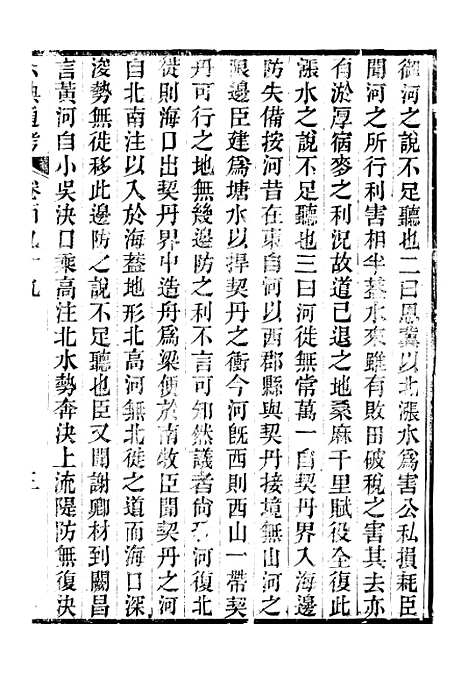 御河之說不足聽也二曰恩冀以北漲水爲害公私損耗臣
聞河之所行利害相半葢水來雖有敗田破稅之害其去亦
有淤厚宿麥之利況故道已退之地桑麻千里賦役全復此
漲水之說不足聽也三曰河徙無常萬一自契丹界入海邊
防失備按河昔在東自河以西郡縣與契丹接境無山河之
限邊臣建爲塘水以捍契丹之衝今河旣西則西山一帶契
丹可行之地無幾邊防之利不言可知然議者尙恐河復北
徙則海口出契丹界中造舟爲梁便於南牧臣聞契丹之河
自北南注以入於海葢地形北高河無北徙之道而海口深
浚勢無徙移此邊防之說不足聽也臣又聞謝卿材到闕昌
言黃河自小吳決口乘高注北水勢奔決上流隄防無復決
六典通考 卷百九十九 三